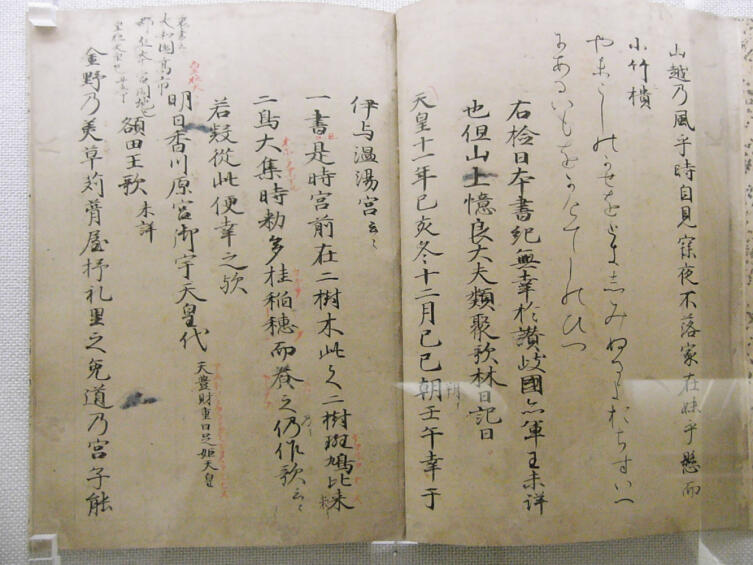 山越乃風乎時自見寐夜不落家在妹乎懸而
小竹樻
やまこしのかせをときしみぬるよおちすいへ
にあるいもをかけてしのひつ
右檢日本書紀無幸於讃岐國亦軍王未詳
也但山上憶良大夫類聚歌林曰記曰
天皇十一年己亥冬十二月己巳朝壬午幸于
伊与温湯宮云々
一書是時宮前在二樹木此之二樹斑鳩比米
二鳥大集時勅多桂稲穂而養之仍作歌云々
若疑從此便幸之歟
明日香川原宮御宇天皇代 天豊財重日足姫天皇
額田王歌 未詳
金野乃美草苅葺屋杼礼里之兎道乃宮子能